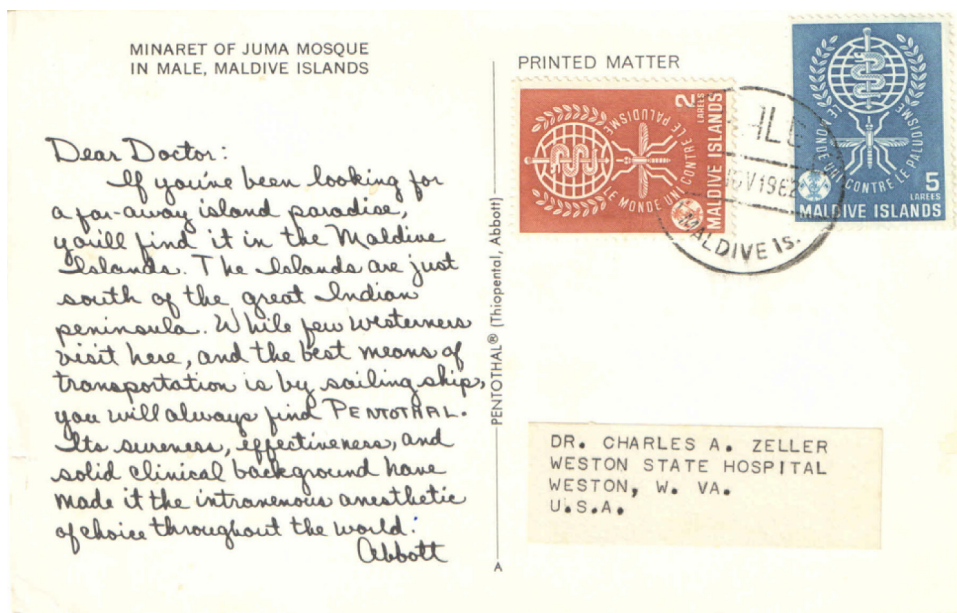 MINARET OF JUMA MOSQUE
IN MALE, MALDIVE ISLANDS
Dear Doctor:
If you've been looking for
a far-away island paradise,
you'll find it in the Maldive
Islands. The Islands are just
south of the great Indian
peninsula. While few westerners
visit here, and the best means of
transportation is by sailing ship,
you will always find PENTOTHAL.
Its sureness, effectiveness, and
solid clinical background have
made it the intravenous anesthetic
of choice throughout the world.
Abbott
PENTOTHAL® (Thiopental, Abbott)
A
PRINTED MATTER
2
LAREES
MALDIVE ISLANDS
LE MONDE UNI CONTRE LE PALUDISME
5
LAREES
MALDIVE ISLANDS
LE MONDE UNI CONTRE LE PALUDISME
1962
MALDIVE Is.
DR. CHARLES A. ZELLER
WESTON STATE HOSPITAL
WESTON, W. VA.
U.S.A.